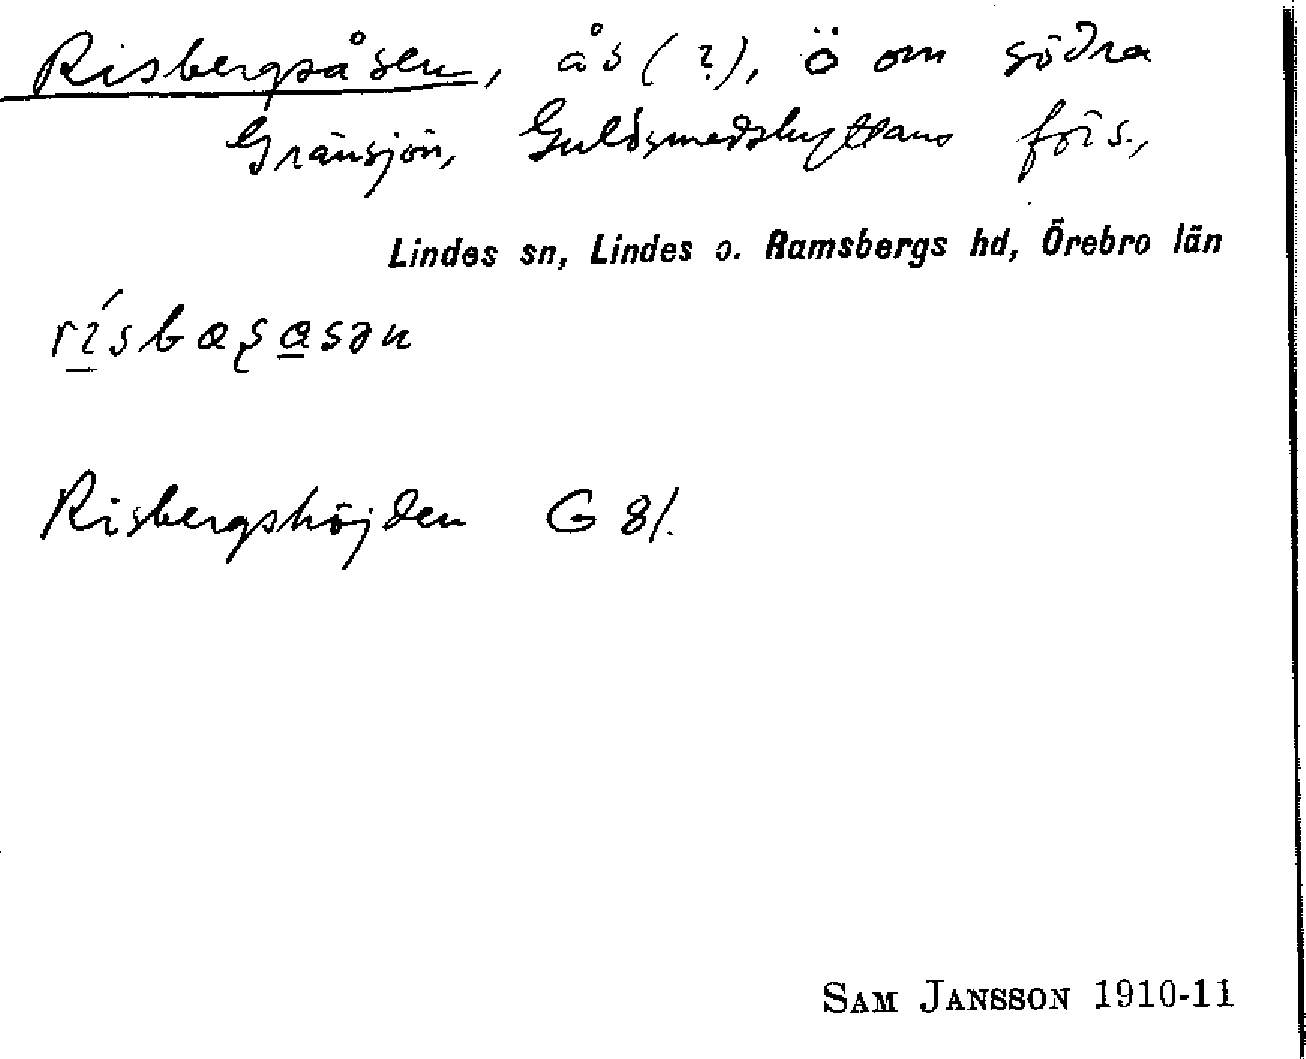 Risbergsåsen, ås (?), ö om södra
Gränsjön, Guldsmedshyttans förs.,
Lindes sn, Lindes o. Ramsbergs hd, Örebro län
rísbæʂasən
Risbergshöjden G 81.
SAM JANSSON 1910-11